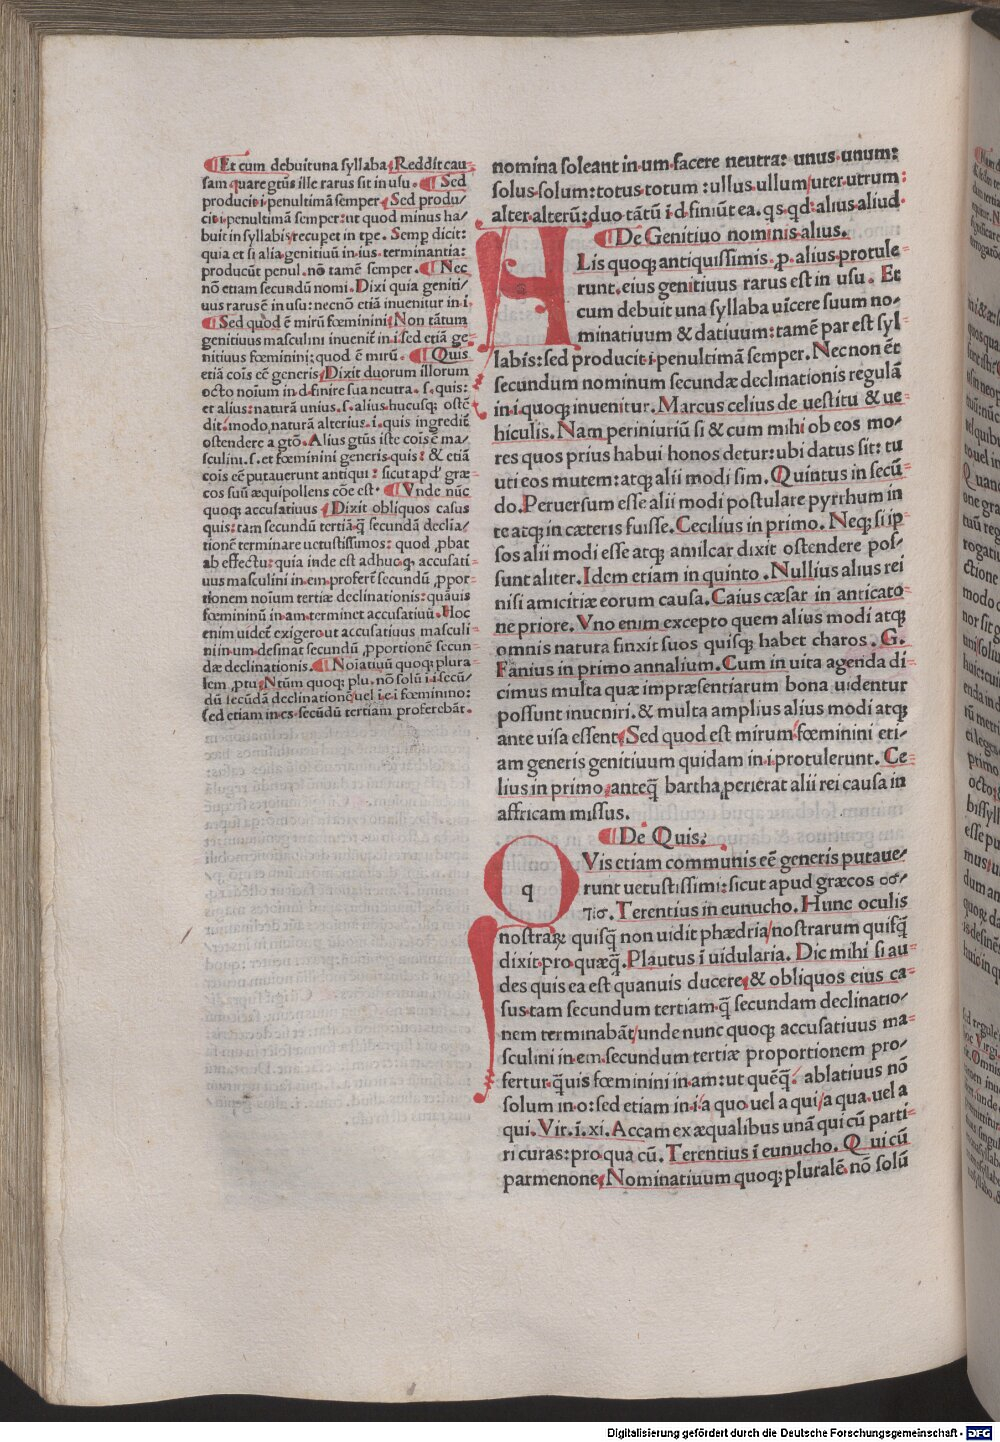 Et cum debuit una syllaba Reddit cau-
sam quare gtūs ille rarus sit in usu. Sed
producit i penultimā semper Sed produ/
cit i penultimā semper: ut quod minus ha/
buit in syllabis recupet in tpe. Semp dicit:
quia et si alia genitiuū in ius terminantia:
producūt penul. nō tamē semper. Nec
nō etiam secundū nomi. Dixi quia geniti/
uus rarus ē in usu: necnō etiā inuenitur in i.
Sed quod ē mirū fœminini Non tātum
genitiuus masculini inueniť in i sed etiā ge-
nitiuus fœminini: quod ē mirū. Quis
etiā cois eē generis Dixit duorum illorum
octo noium in d finire sua neutra. s. quis:
et alius: naturā unius. s. alius hucusq; ostē
dit: modo naturā alterius .i. quis ingredit̄
ostendere a gtō. Alius gtūs iste cois ē ma/
sculini. s. et fœminini generis quis: & etiā
cois eē putauerunt antiqui: sicut apd' græ-
cos suū æquipollens cōe est. Vnde nūc
quoq; accusatiuus Dixit obliquos casus
quis: tam secundū tertiā q̄ secundā declia/
tionē terminare uetustissimos: quod ꝓbat
ab effectu: quia inde est adhuc q, accusati-
uus masculini in em profert̄ secundū ꝓpor-
tionem noium tertiæ declinationis: quāuis
fœmininū in am terminet accusatiuū. Hoc
enim uideť exigere ut accusatiuus masculi-
ni in um desinat secundū ꝓportionē secun-
dæ declinationis. Noiatiuū quoq; plura-
lem ꝓtu. Ntūm quoq; plu. nō solū i i secū/
dū secūdā declinationē uel i e i fœminino:
sed etiam in es secūdū tertiam proferebāt.
nomina soleant in um facere neutra: unus unum:
solus solum: totus totum: ullus ullum/ uter utrum:
alter alterū: duo tātū i d finiūt ea. qs qd: alius aliud.
De Genitiuo nominis alius.
ALis quoq; antiquissimis .p. alius protule-
runt. eius genitiuus rarus est in usu. Et
cum debuit una syllaba uīcere suum no/
minatiuum & datiuum: tamē par est syl/
labis: sed producit i penultimā semper. Nec non ēt
secundum nominum secundæ declinationis regulā
in i quoq; inuenitur. Marcus celius de uestitu & ue/
hiculis. Nam periniuriū si & cum mihi ob eos mo/
res quos prius habui honos detur: ubi datus sit: tu
uti eos mutem: atq; alii modi sim. Quintus in secū-
do. Peruersum esse alii modi postulare pyrrhum in
te atq; in cæteris fuisse. Cecilius in primo. Neq; si ip
sos alii modi esse atq; amilcar dixit ostendere pos/
sunt aliter. Idem etiam in quinto. Nullius alius rei
nisi amicitiæ eorum causa. Caius cæsar in anticato-
ne priore. Vno enim excepto quem alius modi atq;
omnis natura finxit suos quisq; habet charos. G.
Fanius in primo annalium. Cum in uita agenda di-
cimus multa quæ impræsentiarum bona uidentur
possunt inueniri. & multa amplius alius modi atq;
ante uisa essent Sed quod est mirum fœminini eti-
am generis genitiuum quidam in i protulerunt. Ce-
lius in primo anteq̄ bartha perierat alii rei causa in
affricam missus.
De Quis.
q
QVis etiam communis eē generis putaue/
runt uetustissimi: sicut apud græcos
Terentius in eunucho. Hunc oculis
nostraꝝ quisq̄ non uidit phædria/ nostrarum quisq̄
dixit pro quæq̄. Plautus ī uidularia. Dic mihi si au-
des quis ea est quanuis ducere & obliquos eius ca-
sus tam secundum tertiam q̄ secundam declinatio/
nem terminabāt/ unde nunc quoq; accusatiuus ma-
sculini in em secundum tertiæ proportionem pro/
fertur q̄uis fœminini in am: ut quēq̄: ablatiuus nō
solum in o: sed etiam in i/ a quo uel a qui/ a qua uel a
qui. Vir. ī. xi. Accam ex æqualibus unā qui cū parti-
ri curas: pro qua cū. Terentius ī eunucho. Qui cū
parmenone Nominatiuum quoq; pluralē nō solū
Digitalisierung gefördert durch die Deutsche Forschungsgemeinschaft - DFG